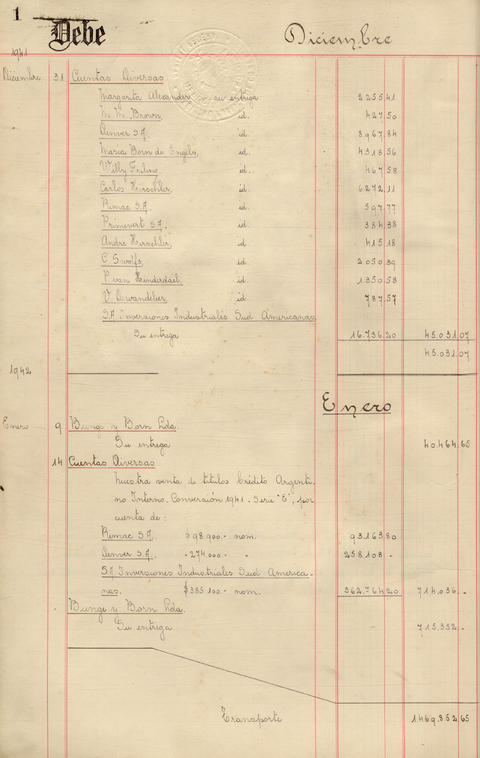 1
Debe
Diciembre
1941
Diciembre 31 Cuentas Diversas
Margarita Alexander su entrega 2255,41
M. M. Brown id. 427,50
Denver S.A. id. 8967,84
Maria Born de Engels id. 4318,56
Willy id. 467,58
Carlos Hirschler id. 6272,11
Rimac S.A. id. 597,77
Primevert S.A. id. 384,38
Andre Hirschler id. 415,18
C. Swolfs id. 2050,39
P. van id. 1350,58
V. id. 787,57
S.A. Inversiones Industriales Sud Americanas
Su entrega 16.736,20 45.031,07
45.031,07
1942
Enero
Enero 9 Bunge y Born Ltda.
Su entrega 40.464,65
14 Cuentas Diversas
Nuestra venta de títulos Crédito Argenti-
no Interno. Conversión 1941 - Serie "E", por
cuenta de:
Rimac S.A. $ 98.900.- nom. 93163,80
Denver S.A. " 274.000.- " 258.108.-
S.A. Inversiones Industriales Sud America-
nas. $ 385.100.- nom. 362.764,20 714.036.-
Bunge y Born Ltda.
Su entrega 715.352.-
Transporte 1.469.852,65